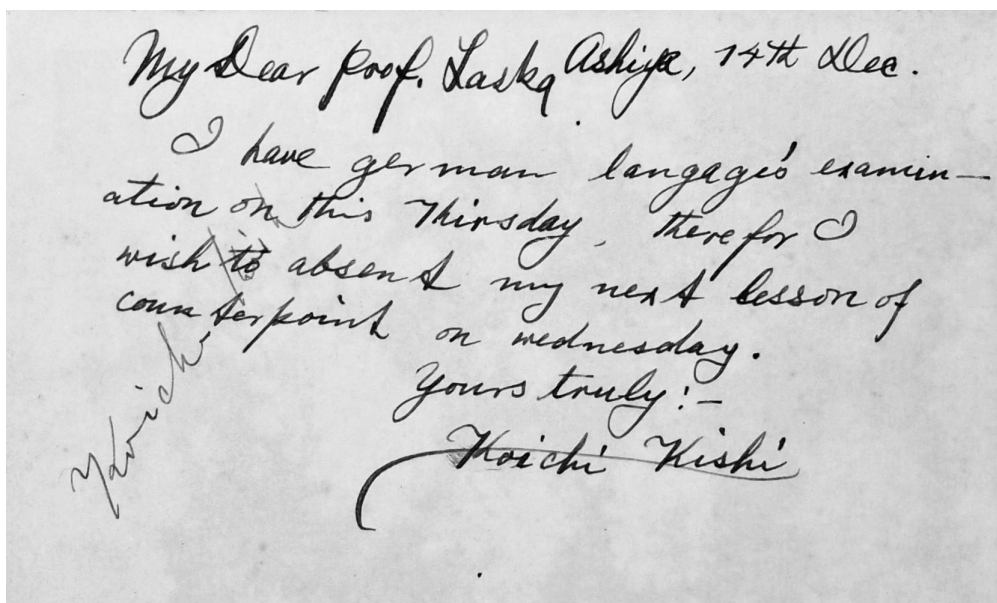 My Dear Prof. Laska Ashiya, 14th Dec.
I have german langage's examin-
ation on this Thirsday. therefor I
wish to absent my next lesson of
counterpoint on wednesday.
Yours truly:-
Koichi Kishi
Koichi